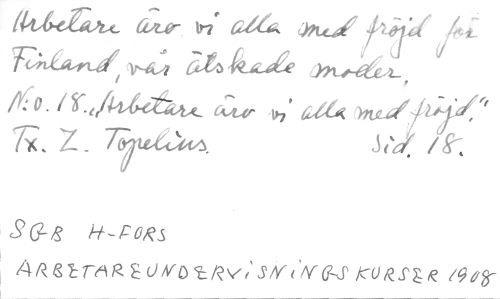 Arbetare äro vi alla med fröjd för
Finland, vår älskade moder.
N:o. 18. „Arbetare äro vi alla med fröjd."
Tx. Z. Topelius. Sid. 18.
SGB H-FORS
ARBETAREUNDERVISNINGSKURSER 1908